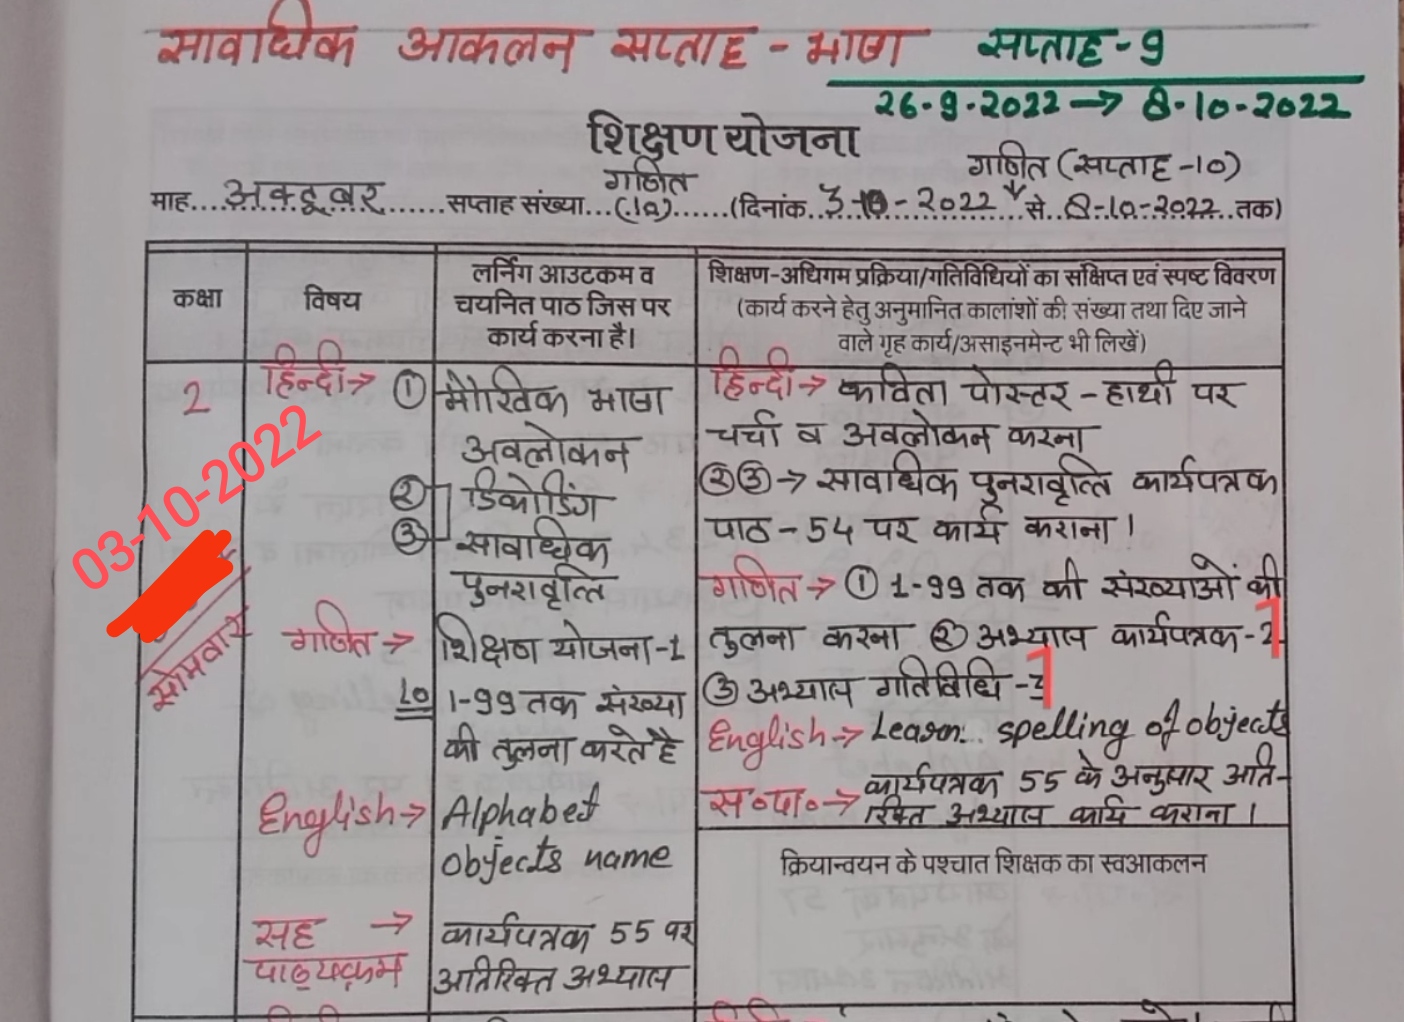 सावधिक आकलन सप्ताह - भाषा सप्ताह-9
26-9-2022 → 8-10-2022
शिक्षण योजना
गणित गणित (सप्ताह-10)
माह....अक्टूबर.......सप्ताह संख्या...(10)......(दिनांक..3-10-2022..से..8-10-2022..तक)
कक्षा
विषय
लर्निंग आउटकम व
चयनित पाठ जिस पर
कार्य करना है।
शिक्षण-अधिगम प्रक्रिया/गतिविधियों का संक्षिप्त एवं स्पष्ट विवरण
(कार्य करने हेतु अनुमानित कालांशों की संख्या तथा दिए जाने
वाले गृह कार्य/असाइनमेन्ट भी लिखें)
2
03-10-2022
सोमवार
हिन्दी→ ① मौखिक भाषा
अवलोकन
② डिकोडिंग
③ सावाधिक
पुनरावृत्ति
गणित→ शिक्षण योजना-1
10 1-99 तक संख्या
की तुलना करते है
English→ Alphabet
objects name
सह → कार्यपत्रक 55 पर
पाठ्यक्रम अतिरिक्त अभ्यास
हिन्दी→ कविता पोस्टर - हाथी पर
चर्चा व अवलोकन करना
②③→ सावधिक पुनरावृत्ति कार्यपत्रक
पाठ-54 पर कार्य कराना।
गणित→ ① 1-99 तक की संख्याओं की
तुलना करना ② अभ्यास कार्यपत्रक-1
③ अभ्यास गतिविधि-1
English→ Learn.. spelling of objects
स॰पा॰→ कार्यपत्रक 55 के अनुसार अति-
रिक्त अभ्यास कार्य कराना।
क्रियान्वयन के पश्चात शिक्षक का स्वआकलन